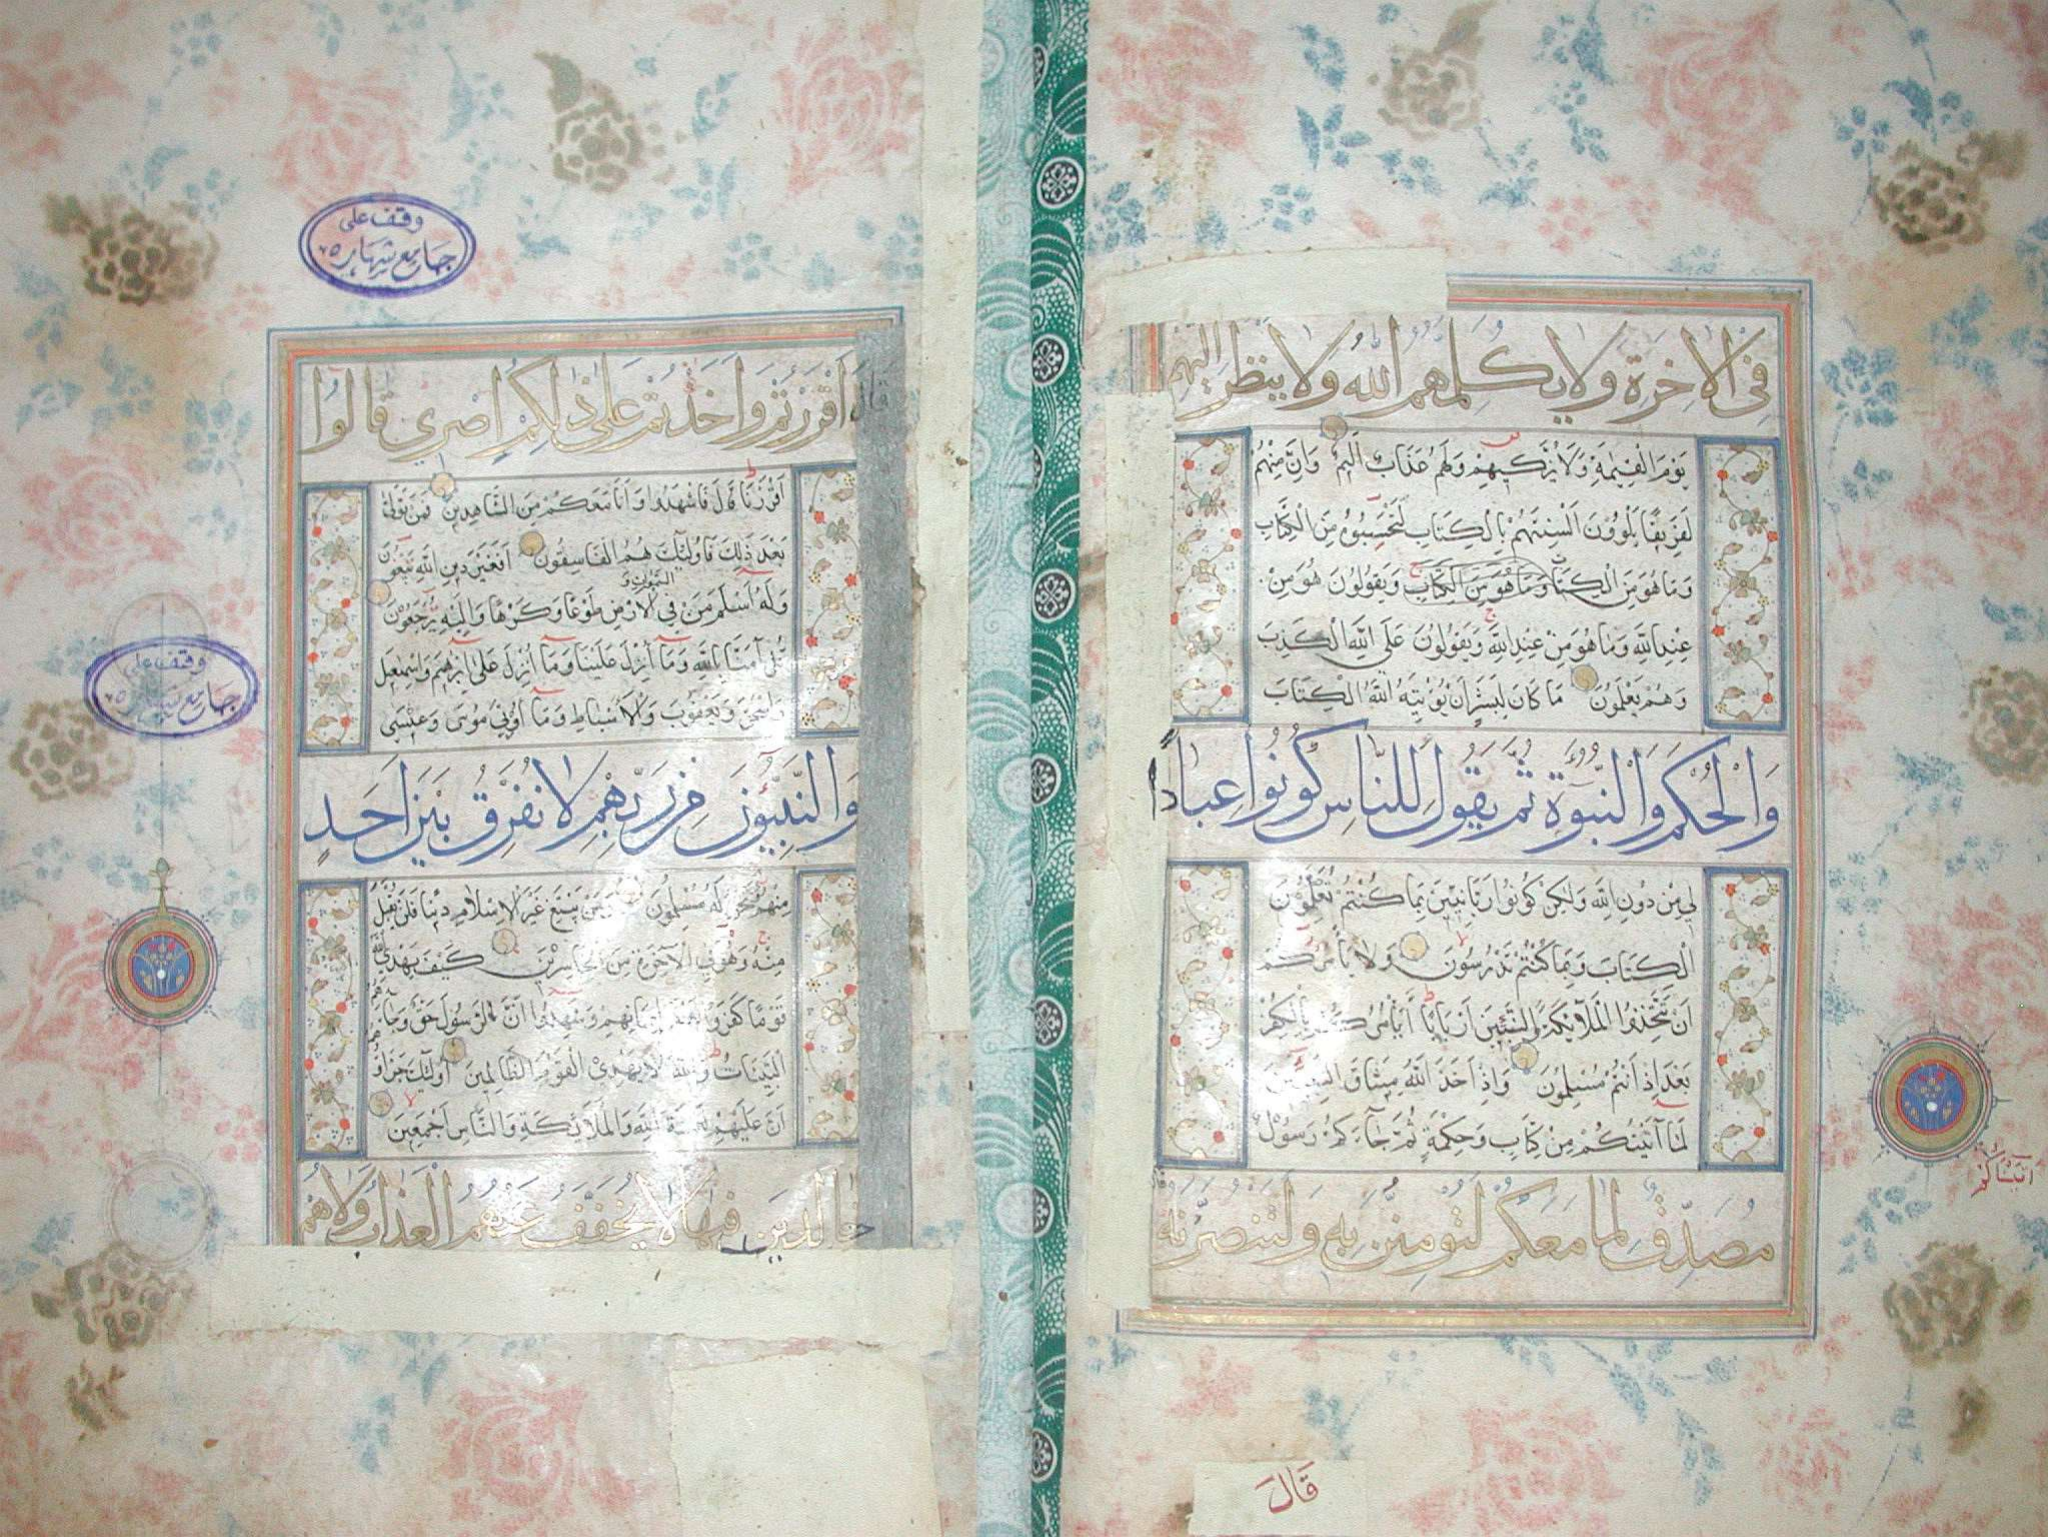 فِي الْاٰخِرَةِ وَلَا يُكَلِّمُهُمُ اللّٰهُ وَلَا يَنْظُرُ اِلَيْهِمْ
يَوْمَ الْقِيٰمَةِ وَلَا يُزَكِّيهِمْ وَلَهُمْ عَذَابٌ اَلِيْمٌ وَاِنَّ مِنْهُمْ
لَفَرِيقًا يَلْوُونَ اَلْسِنَتَهُمْ بِالْكِتَابِ لِتَحْسَبُوهُ مِنَ الْكِتَابِ
وَمَا هُوَ مِنَ الْكِتَابِ وَمَا هُوَ مِنَ الْكِتَابِ وَيَقُولُونَ هُوَ مِنْ
عِنْدِ اللّٰهِ وَمَا هُوَ مِنْ عِنْدِ اللّٰهِ وَيَقُولُونَ عَلَى اللّٰهِ الْكَذِبَ
وَهُمْ يَعْلَمُونَ مَا كَانَ لِبَشَرٍ اَنْ يُؤْتِيَهُ اللّٰهُ الْكِتَابَ
وَالْحُكْمَ وَالنُّبُوَّةَ ثُمَّ يَقُولَ لِلنَّاسِ كُونُوا عِبَادًا
لِي مِنْ دُونِ اللّٰهِ وَلٰكِنْ كُونُوا رَبَّانِيِّينَ بِمَا كُنْتُمْ تُعَلِّمُونَ
الْكِتَابَ وَبِمَا كُنْتُمْ تَدْرُسُونَ وَلَا يَأْمُرَكُمْ
اَنْ تَتَّخِذُوا الْمَلَآئِكَةَ وَالنَّبِيِّينَ اَرْبَابًا اَيَأْمُرُكُمْ بِالْكُفْرِ
بَعْدَ اِذْ اَنْتُمْ مُسْلِمُونَ وَاِذْ اَخَذَ اللّٰهُ مِيثَاقَ النَّبِيِّينَ
لَمَا آتَيْتُكُمْ مِنْ كِتَابٍ وَحِكْمَةٍ ثُمَّ جَآءَكُمْ رَسُولٌ
مُصَدِّقٌ لِمَا مَعَكُمْ لَتُؤْمِنُنَّ بِهِ وَلَتَنْصُرُنَّهُ
قَالَ
اتيناكم
قَالَ
وقف على
جامع شهاره
قَالَ اَاَقْرَرْتُمْ وَاَخَذْتُمْ عَلٰى ذٰلِكُمْ اِصْرِي قَالُوا
اَقْرَرْنَا قَالَ فَاشْهَدُوا وَاَنَا مَعَكُمْ مِنَ الشَّاهِدِينَ فَمَنْ تَوَلّٰى
بَعْدَ ذٰلِكَ فَاُولٰٓئِكَ هُمُ الْفَاسِقُونَ اَفَغَيْرَ دِينِ اللّٰهِ يَبْغُونَ
السَّمٰوٰتِ وَ
وَلَهُ اَسْلَمَ مَنْ فِي الْاَرْضِ طَوْعًا وَكَرْهًا وَاِلَيْهِ يُرْجَعُونَ
قُلْ آمَنَّا بِاللّٰهِ وَمَا اُنْزِلَ عَلَيْنَا وَمَا اُنْزِلَ عَلٰى اِبْرٰهِيمَ وَاِسْمٰعِيلَ
وَاِسْحٰقَ وَيَعْقُوبَ وَالْاَسْبَاطِ وَمَا اُوتِيَ مُوسٰى وَعِيسٰى
وَالنَّبِيُّونَ مِنْ رَبِّهِمْ لَا نُفَرِّقُ بَيْنَ اَحَدٍ
مِنْهُمْ وَنَحْنُ لَهُ مُسْلِمُونَ وَمَنْ يَبْتَغِ غَيْرَ الْاِسْلَامِ دِينًا فَلَنْ يُقْبَلَ
مِنْهُ وَهُوَ فِي الْآخِرَةِ مِنَ الْخَاسِرِينَ كَيْفَ يَهْدِي اللّٰهُ
قَوْمًا كَفَرُوا بَعْدَ اِيمَانِهِمْ وَشَهِدُوا اَنَّ الرَّسُولَ حَقٌّ وَجَآءَهُمُ
الْبَيِّنَاتُ وَاللّٰهُ لَا يَهْدِي الْقَوْمَ الظَّالِمِينَ اُولٰٓئِكَ جَزَاؤُهُمْ
اَنَّ عَلَيْهِمْ لَعْنَةَ اللّٰهِ وَالْمَلَآئِكَةِ وَالنَّاسِ اَجْمَعِينَ
خَالِدِينَ فِيهَا لَا يُخَفَّفُ عَنْهُمُ الْعَذَابُ وَلَا هُمْ
وقف على
جامع شهاره